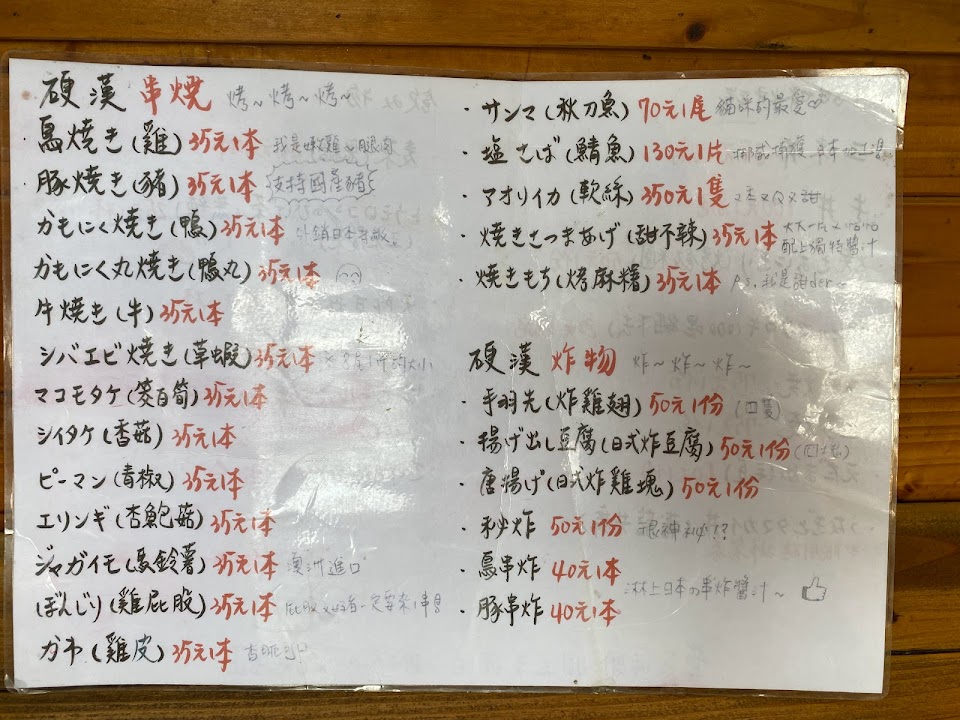 硬漢 串燒 烤~烤~烤~
鳥焼き(雞)35元1本 我是嫩雞~腿肉
豚焼き(豬)35元1本 支持国產豬
かもにく焼き(鴨)35元1本 外銷日本
かもにく丸焼き(鴨丸)35元1本
牛焼き(牛)35元1本
シバエビ焼き(草蝦)35元1本 大小
マコモタケ(筊白筍)35元1本
シイタケ(香菇)35元1本
ピーマン(青椒)35元1本
エリンギ(杏鮑菇)35元1本
ジャガイモ(馬鈴薯)35元1本 澳洲進口
ぼんじり(雞屁股)35元1本 一定要來1串!
カワ(雞皮)35元1本
・サンマ(秋刀魚)70元1尾 貓咪的最愛♡
・塩さば(鯖魚)130元1片 挪威捕獲 日本加工
・アオリイカ(軟絲)350元1隻
・焼きさつまあげ(甜不辣)35元1本
配上獨特醬汁
・焼きもち(烤麻糬)35元1本 Ps.我是甜der~
硬漢 炸物 炸~炸~炸~
・手羽先(炸雞翅)50元1份 (四隻)
・揚げ出し豆腐(日式炸豆腐)50元1份
・唐揚げ(日式炸雞塊)50元1份
・秘炸 50元1份 很神秘!?
・鳥串炸 40元1本
淋上日本の串炸醬汁~
・豚串炸 40元1本